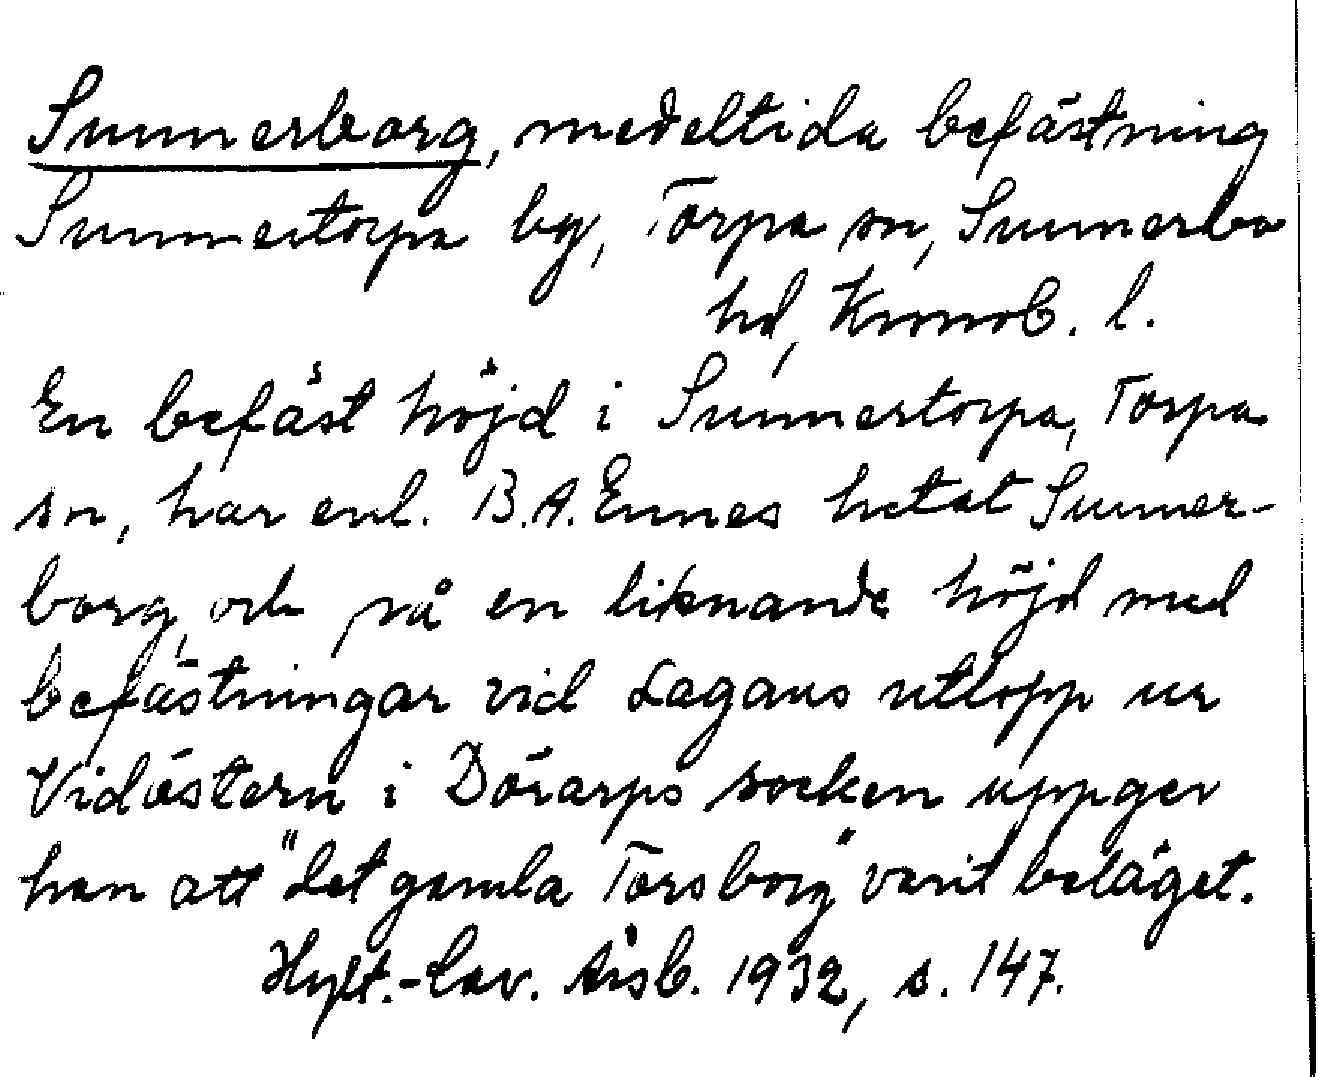 Sunnerborg, medeltida befästning
Sunnertorpa by, Torpa sn, Sunnerbo
hd, Kronob. l.
En befäst höjd i Sunnertorpa, Torpa
sn, har enl. B.A. Ennes hetat Sunner-
borg, och på en liknande höjd med
befästningar vid Lagans utlopp ur
Vidöstern i Dörarps socken uppger
han att "det gamla Torsborg" varit beläget.
Hylt.-Cav. Årsb. 1932, s. 147.